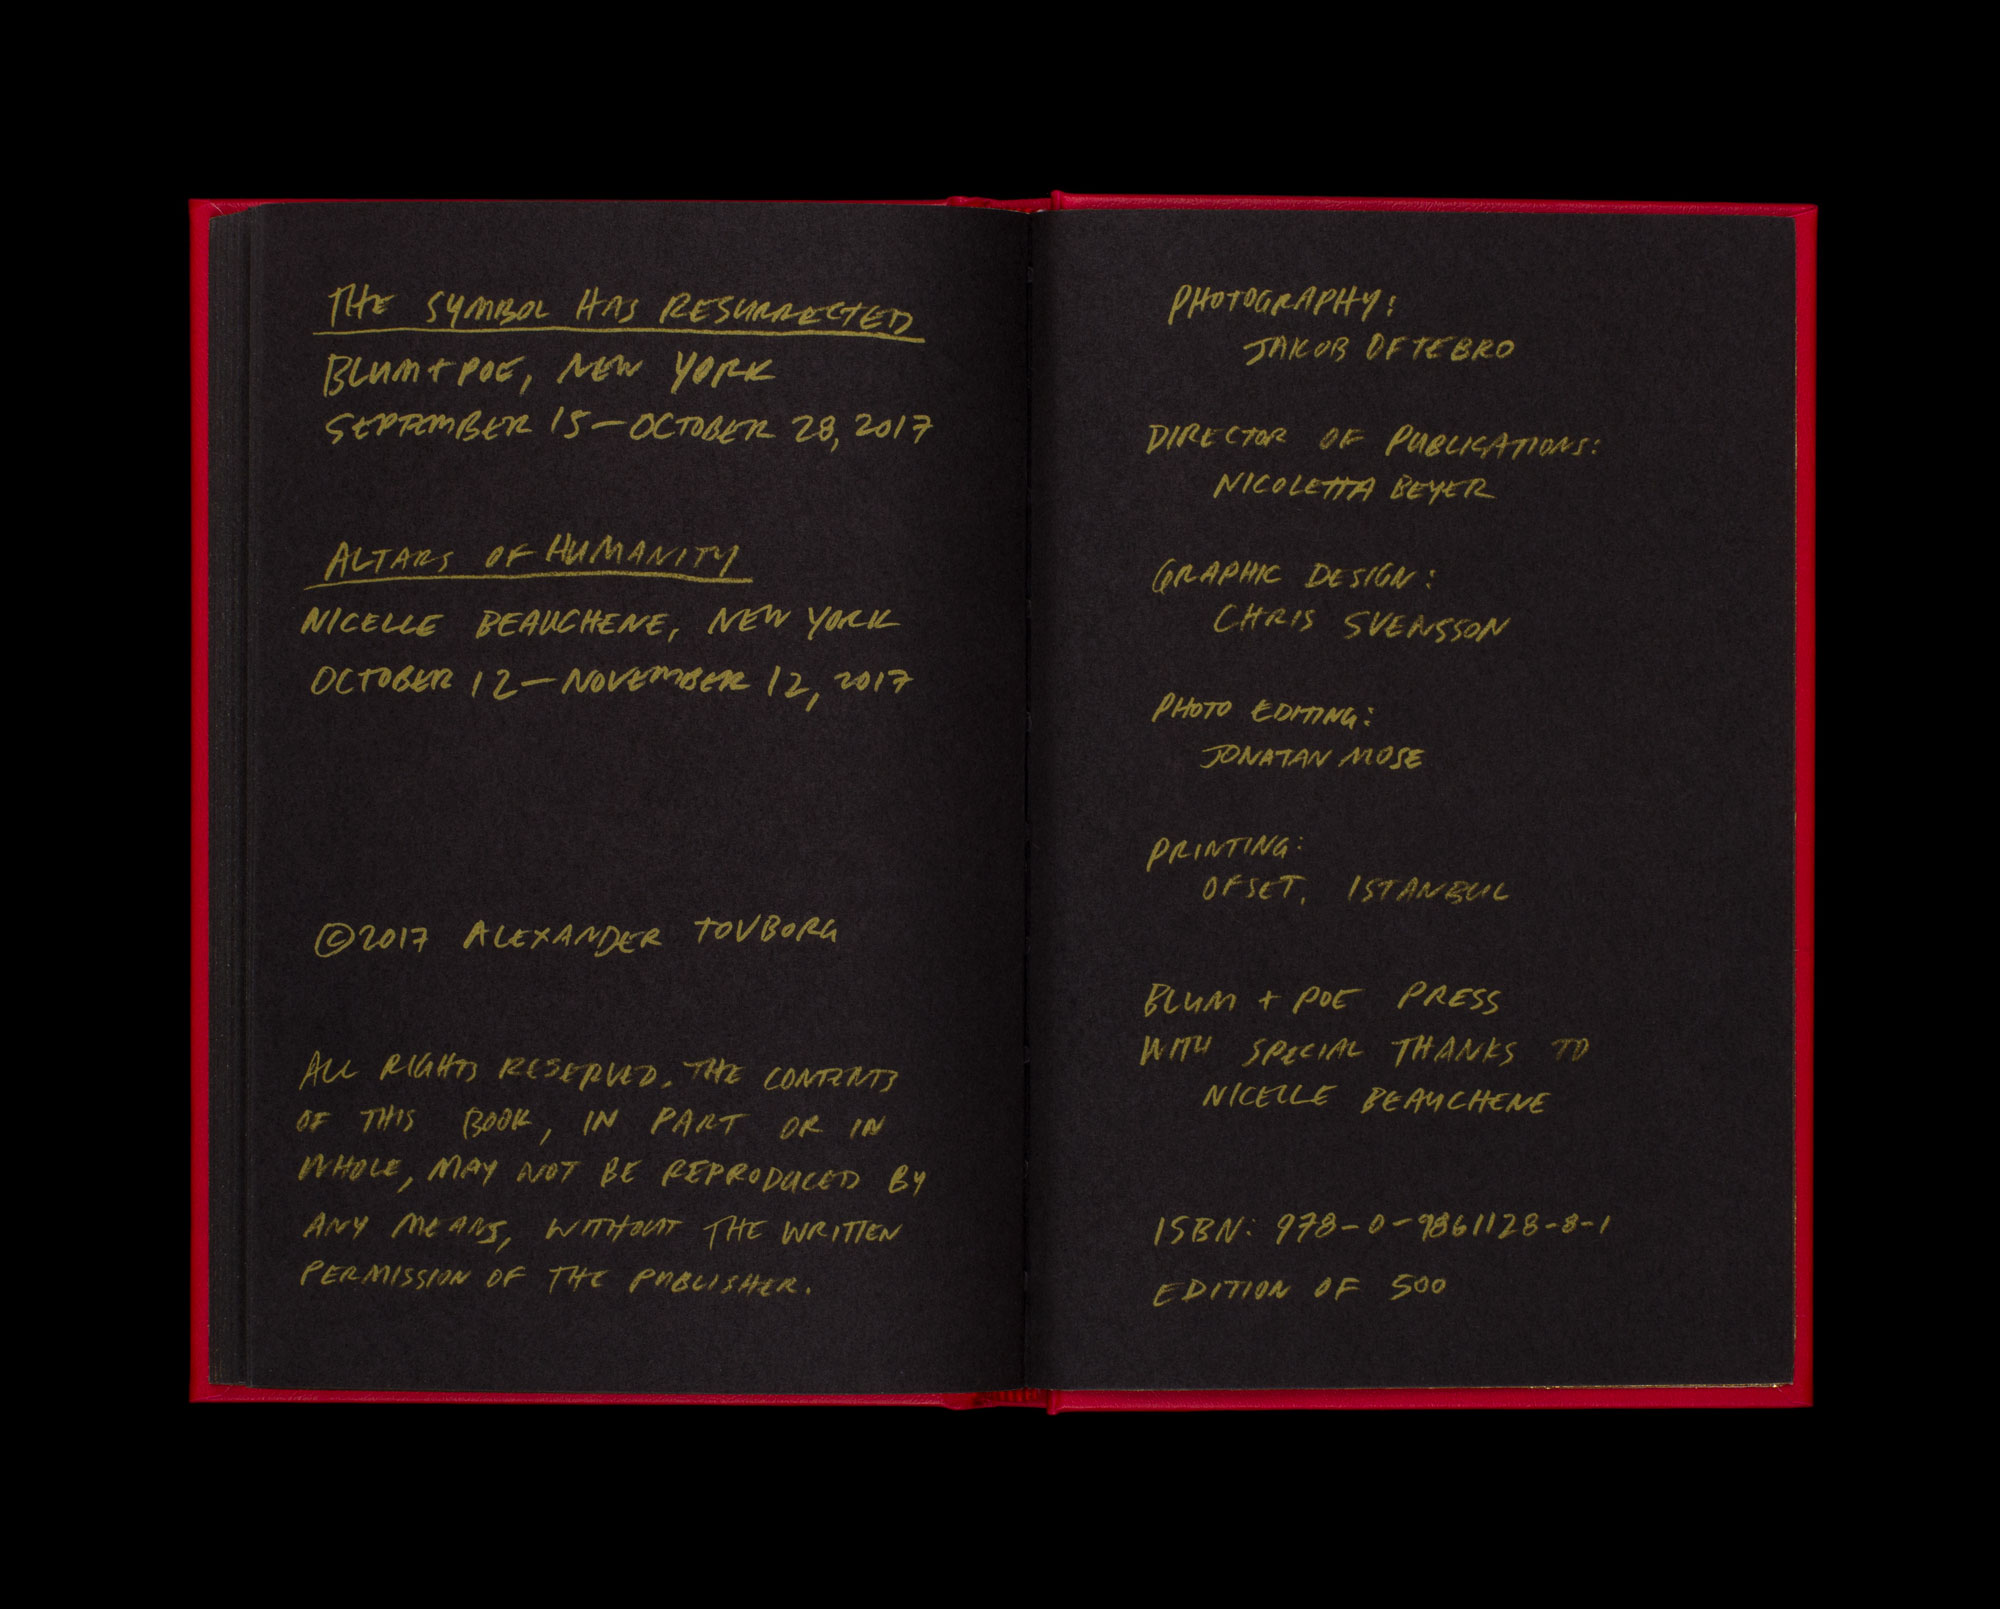 THE SYMBOL HAS RESURRECTED
BLUM + POE, NEW YORK
SEPTEMBER 15 – OCTOBER 28, 2017
ALTARS OF HUMANITY
NICELLE BEAUCHENE, NEW YORK
OCTOBER 12 – NOVEMBER 12, 2017
©2017 ALEXANDER TOVBORG
ALL RIGHTS RESERVED. THE CONTENTS
OF THIS BOOK, IN PART OR IN
WHOLE, MAY NOT BE REPRODUCED BY
ANY MEANS, WITHOUT THE WRITTEN
PERMISSION OF THE PUBLISHER.
PHOTOGRAPHY:
JAKOB OFTEBRO
DIRECTOR OF PUBLICATIONS:
NICOLETTA BEYER
GRAPHIC DESIGN:
CHRIS SVENSSON
PHOTO EDITING:
JONATAN MOSE
PRINTING:
OFSET, ISTANBUL
BLUM + POE PRESS
WITH SPECIAL THANKS TO
NICELLE BEAUCHENE
ISBN: 978-0-9861128-8-1
EDITION OF 500